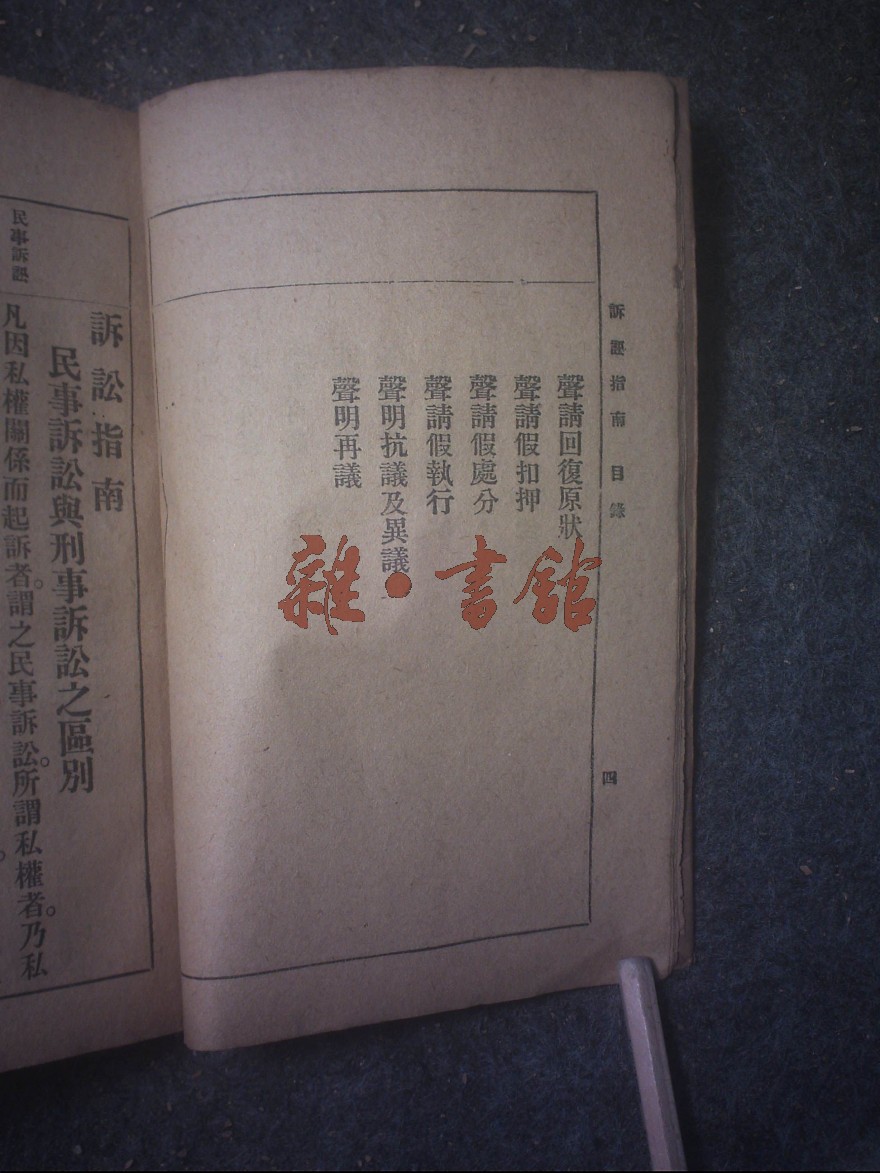 訴訟指南 目錄
四
聲請回復原狀
聲請假扣押
聲請假處分
聲請假執行
聲明抗議及異議
聲明再議
雜·書館
民事訴訟
訴訟指南
民事訴訟與刑事訴訟之區別
凡因私權關係而起訴者。謂之民事訴訟。所謂私權者。乃私